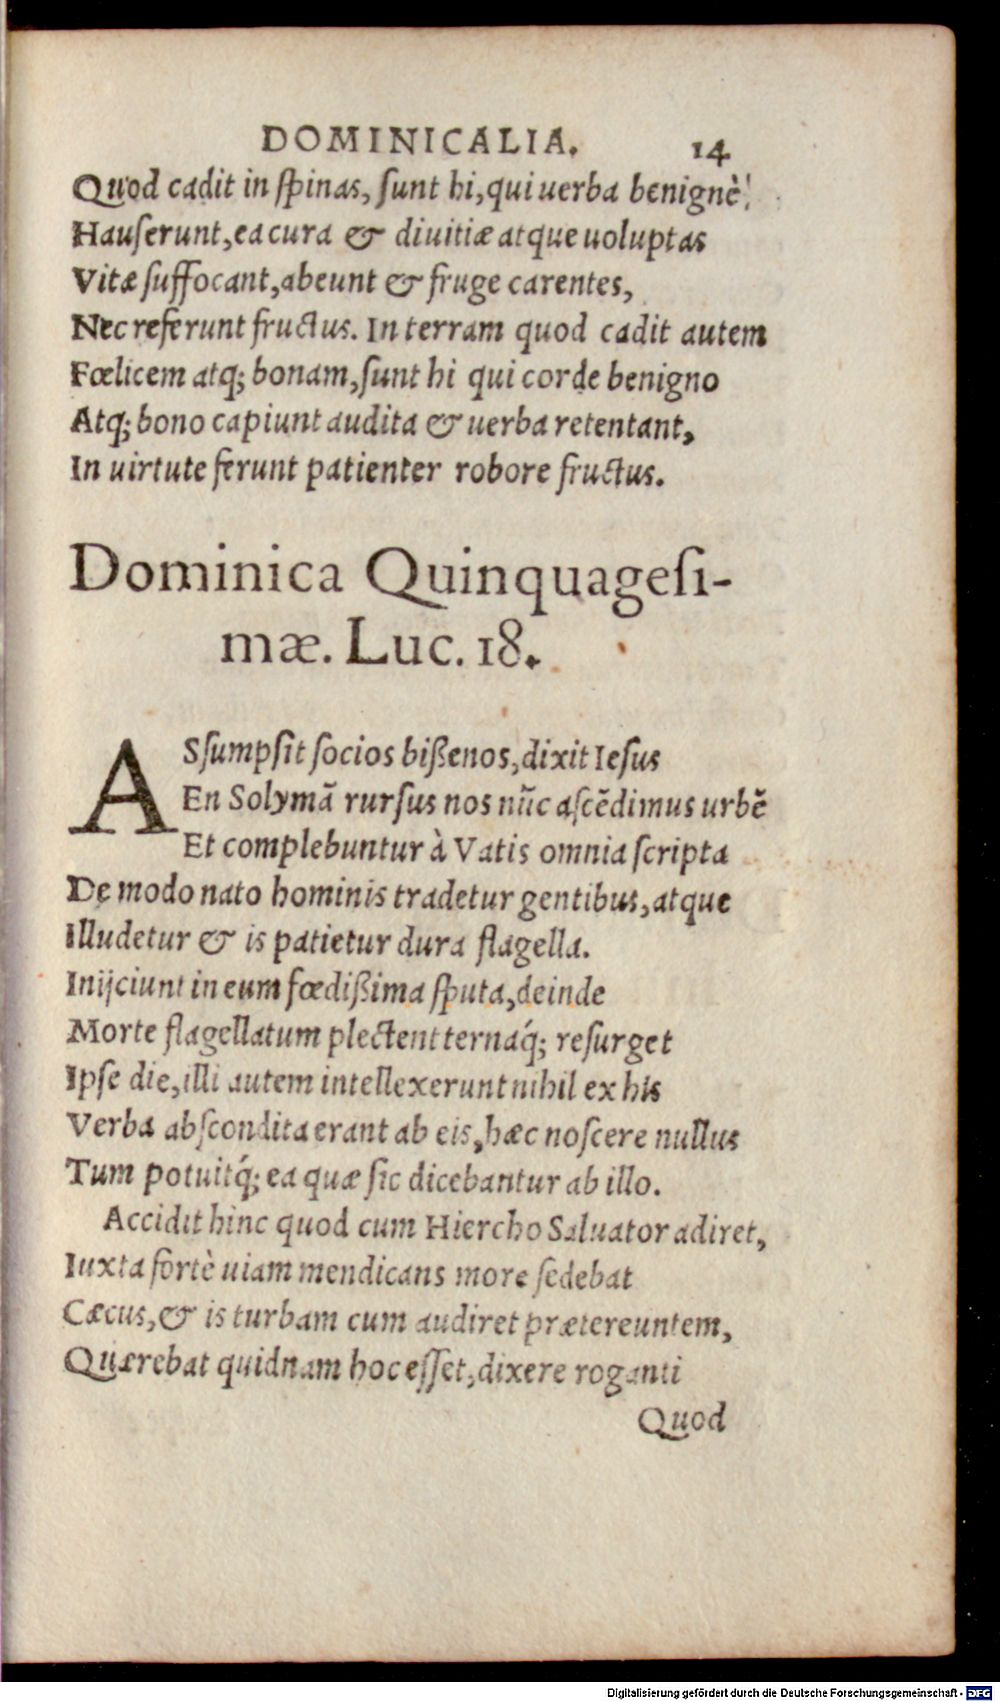 DOMINICALIA. 14
Quod cadit in ſpinas, ſunt hi, qui uerba benignè
Hauſerunt, ea cura & diuitiæ atque uoluptas
Vitæ ſuffocant, abeunt & fruge carentes,
Nec referunt fructus. In terram quod cadit autem
Fœlicem atq; bonam, ſunt hi qui corde benigno
Atq; bono capiunt audita & uerba retentant,
In uirtute ferunt patienter robore fructus.
Dominica Quinquageſi-
mæ. Luc. 18.
ASſumpſit ſocios bißenos, dixit Ieſus
En Solymã rurſus nos nũc aſcẽdimus urbẽ
Et complebuntur à Vatis omnia ſcripta
De modo nato hominis tradetur gentibus, atque
Illudetur & is patietur dura flagella.
Inijciunt in eum fœdißima ſputa, deinde
Morte flagellatum plectent ternaq́; reſurget
Ipſe die, illi autem intellexerunt nihil ex his
Verba abſcondita erant ab eis, hæc noſcere nullus
Tum potuitq́; ea quæ ſic dicebantur ab illo.
Accidit hinc quod cum Hiercho Saluator adiret,
Iuxta fortè uiam mendicans more ſedebat
Cæcus, & is turbam cum audiret prætereuntem,
Quærebat quidnam hoc eſſet, dixere roganti
Quod
Digitalisierung gefördert durch die Deutsche Forschungsgemeinschaft - DFG